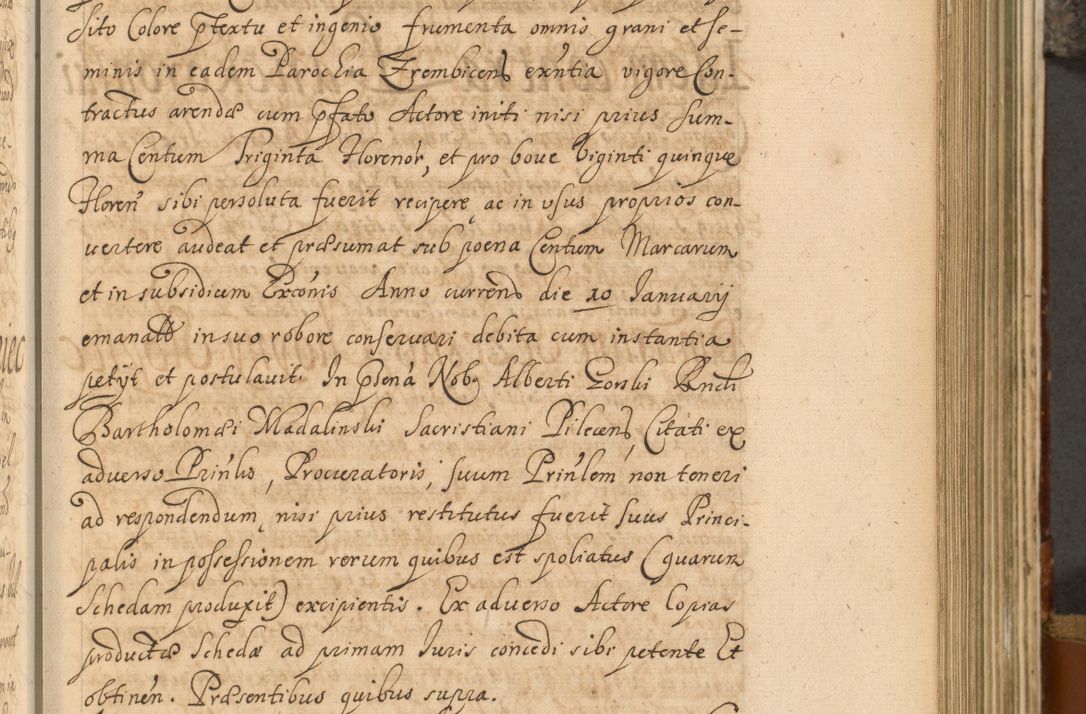 sito Colore ptextu et ingenio frumenta omnis grani et se-
minis in eadem Parochia Trembicens exntia vigore Con-
tractus arendæ cum pfato Actore initi nisi prius Sum-
ma Centum Triginta Florenor, et pro boue Viginti quinque
Floren sibi persoluta fuerit recipere, ac in vsus proprios con-
uertere audeat et præsumat sub poena Centum Marcarum
et in subsidium Exconis Anno currens die 10 Januarij
emanat in suo robore conseruari debita cum instantia
petijt et postulauit. In psena Nob. Alberti Gorski Rndi
Bartholomæi Madalinski Sacristiani Pilecens Citati ex
aduerso Prinlis, Procuratoris, suum Prinlem non teneri
ad respondendum, nisi prius restitutus fuerit suus Princi-
palis in possessionem rerum quibus est spoliatus (quarum
Schedam produxit) excipientis. Ex aduerso Actore Copias
productæ Schedæ ad primam Iuris concedi sibi petente Et
obtinen. Præsentibus quibus supra.